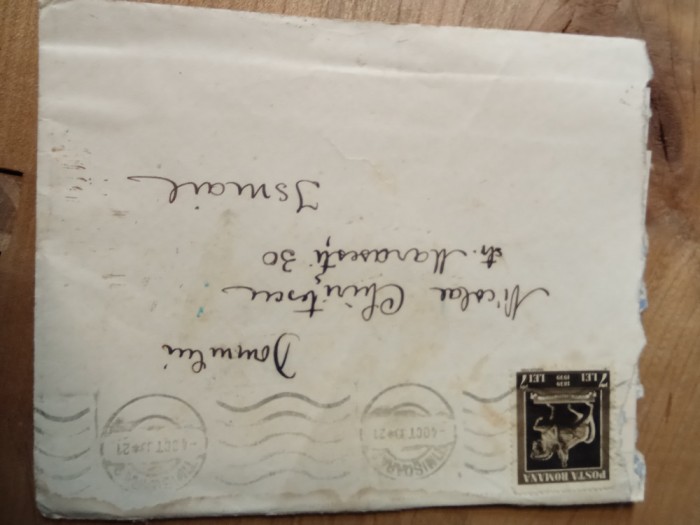 POSTA ROMANA
7 LEI 1939 LEI 7
TIMIȘOARA
-4 OCT
21
TIMIȘOARA
-4 OCT
21
Domnului
Nicolae Chirițescu
str. Marasesti 30
Ismail